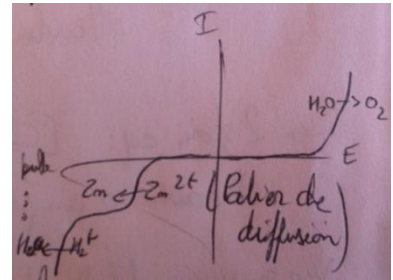 I
H₂O -> O₂
E
Zn <- Zn²⁺
(Palier de
diffusion)